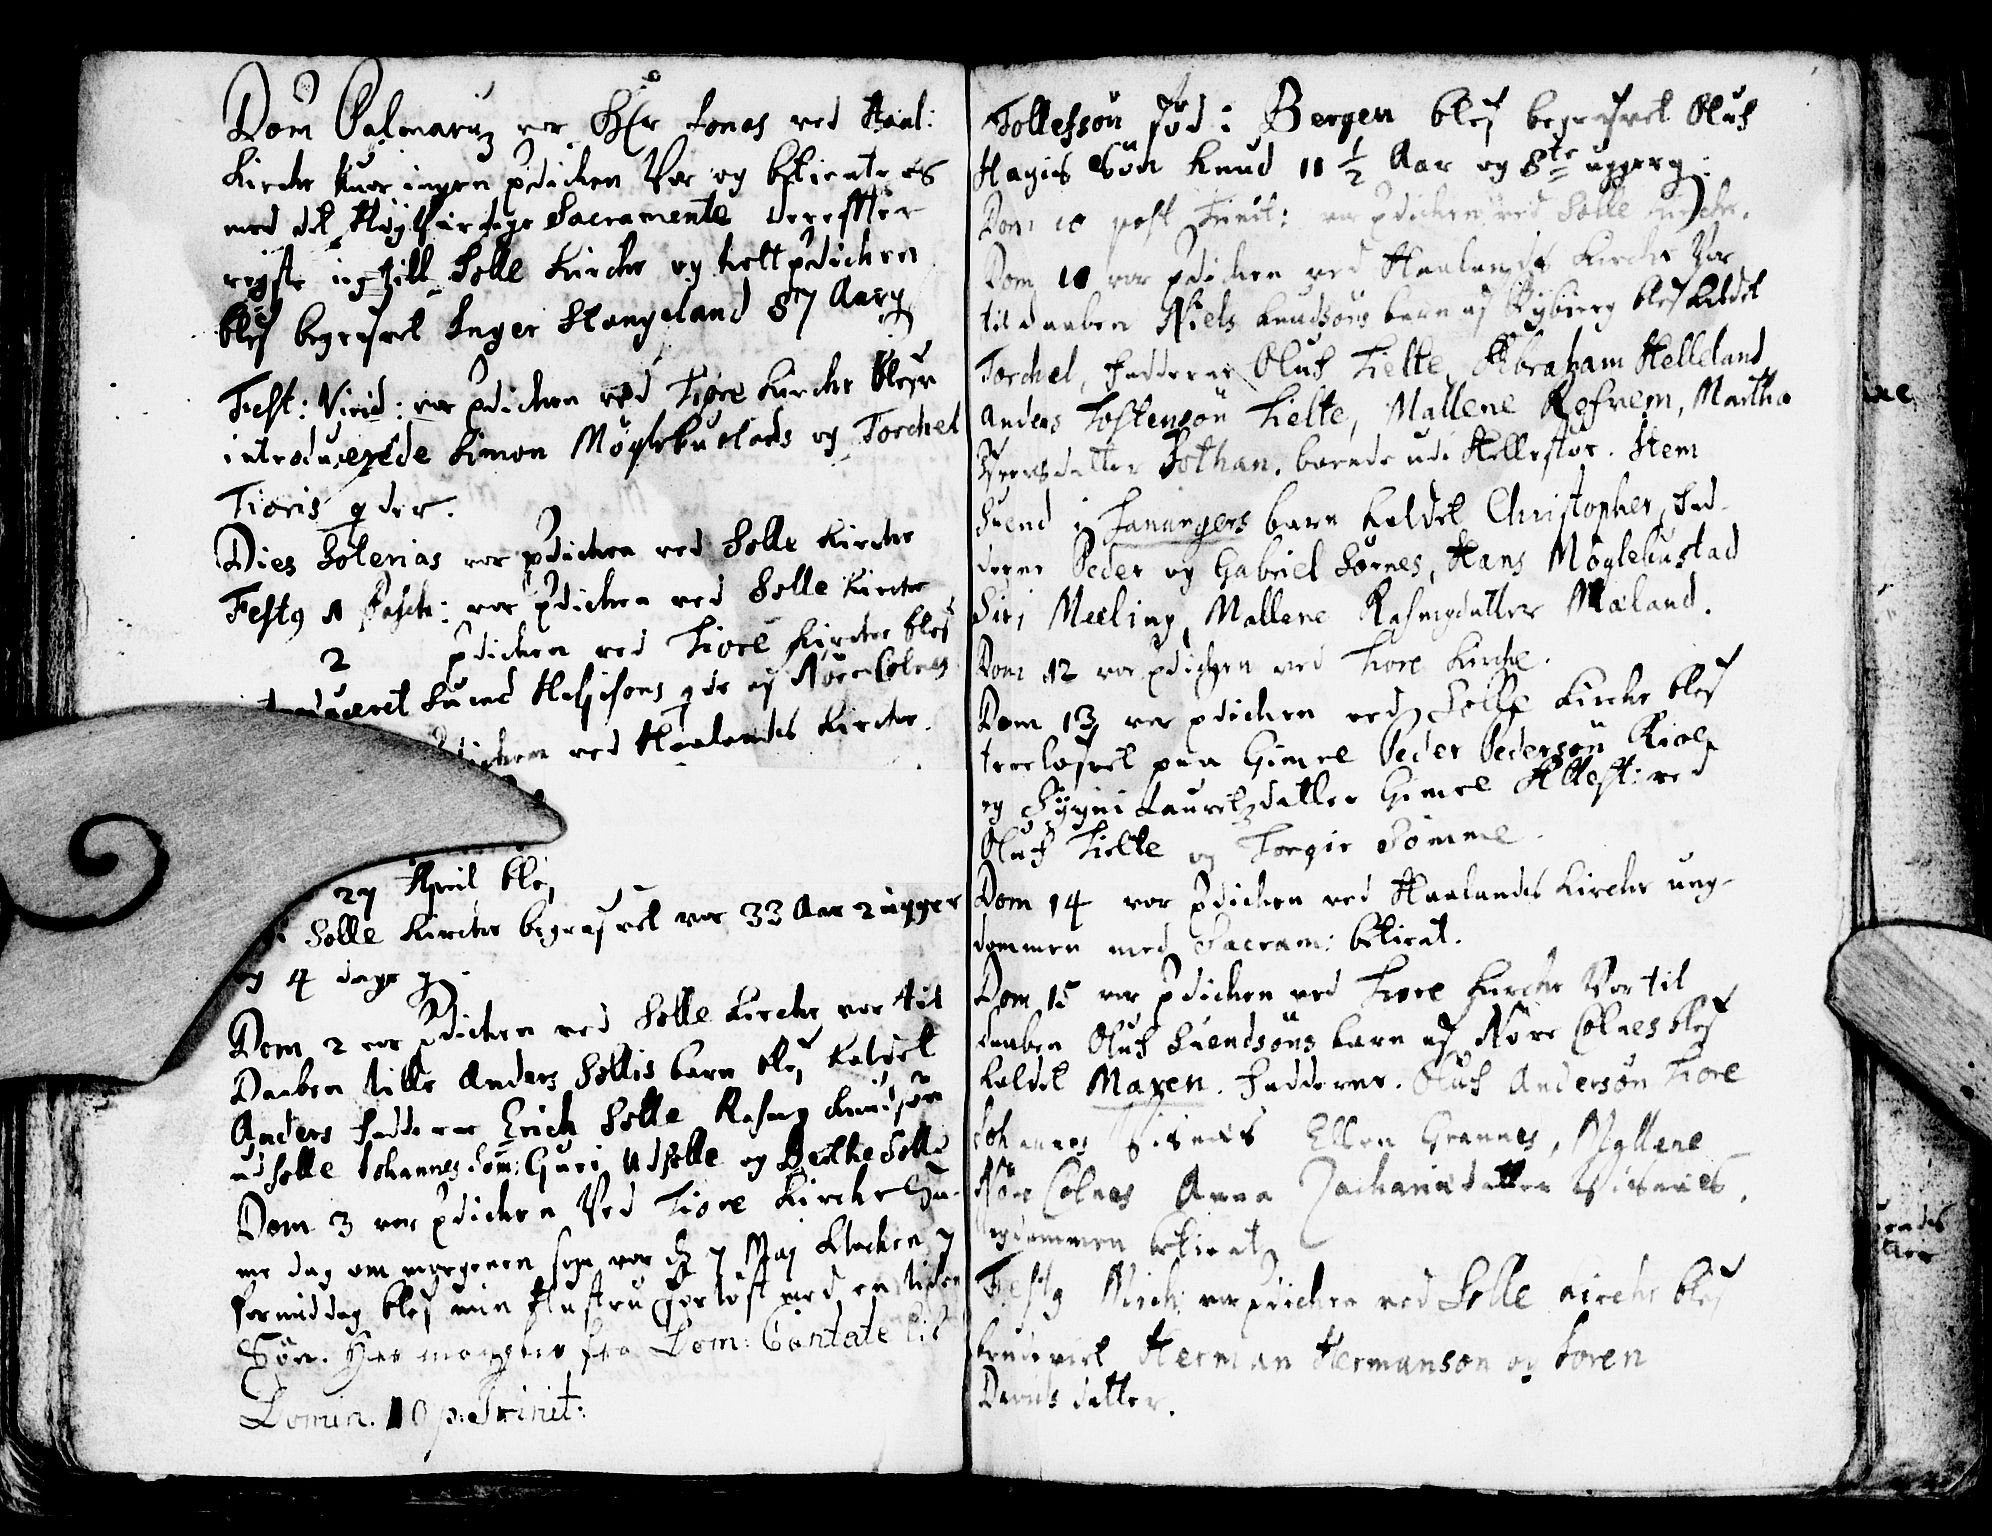 Dom Palmarum var Hr Jonas ved Haal:
Kirche huor ingen pdichen Var og betientes
med det Høyværdige Sacramente dereffter
reyste ieg till Solle Kirche og holt pdichen
blef begrafvet Inger Stangeland 87 Aar
Fest: Virid: var pdichen ved Tiore Kirche blefve
introducerede Simon Møglebustads og Torchel
Tioris qder.
Dies Solenias var pdichen ved Solle Kirche
Festg 1 Pasch: var pdichen ved Solle Kirche
2 pdichen ved Tiore Kirche blef
Suend Helgesons qde af Nore Colnes
pdichen ved Haalands Kirche.
27 April blef
i Solle Kirche begrafvet var 33 Aar 2 ugger
og 4 dage
Dom 2 var pdichen ved Solle Kirche var til
Daaben lille Anders Sollis barn blef kaldet
Anders Fadderne Erich Solle Rasmg Knudsøn
udsolle Johannes Søm: Guri Udsolle og Berthe Solle
Dom 3 var pdichen Ved Tiore Kirche Sa-
me dag om morgenen som var d 7 Maj Klochen 7
formiddag blef min Hustru forløst med en liden
Søn. Her mangler fra Dom: Cantate til
Domin. 10 p: Trinit:
Tollefsøn fød i Bergen blef begrafvet Oluf
Hagies Søn Knud 11 1/2 Aar og 8te ugger
Dom 10 post Trinit: var pdichen ved Solle Kirche.
Dom 11 var pdichen ved Haalands Kirche Var
til daaben Niels Knudsøns barn af Myklebierg blef kaldet
Torchel, Fadderne Oluf Tielte, Abraham Helleland
Anders Tostensøn Tielte, Mallene Røfrem, Martha
Iversdatter Jothan. boende udi Hellestøe. Item
Suend i Tanangers barn kaldet Christopher, Fad-
derne Peder og Gabriel Sørnes, Hans Møglebustad
Siri Meeling, Mallene Rasmgdatter Mæland.
Dom 12 var pdichen ved Tiore Kirche.
Dom 13 var pdichen ved Solle Kirche blef
troelofvet paa Gimre Peder Pedersøn Riole
og Sygni Lauritzdatter Gimre Attest: ved
Oluf Tielte og Torgie Sømme.
Dom 14 var pdichen ved Haalands Kirche ung-
dommen med Sacram: betient.
Dom 15 var pdichen ved Tiore Kirche Var til
daaben Oluf Suendsøns barn af Nøre Colnes blef
kaldet Maren. Fadderne. Oluf Andersøn Tiore
Johannes Visnæs Ellen Grannes, Mallene
Nøre Colnes Anna Zachariædatter Visnæs.
betient
Festg Mich: var pdichen ved Solle Kirche blef
brudeviet Herman Hermanson og Soren
Davidsdatter.